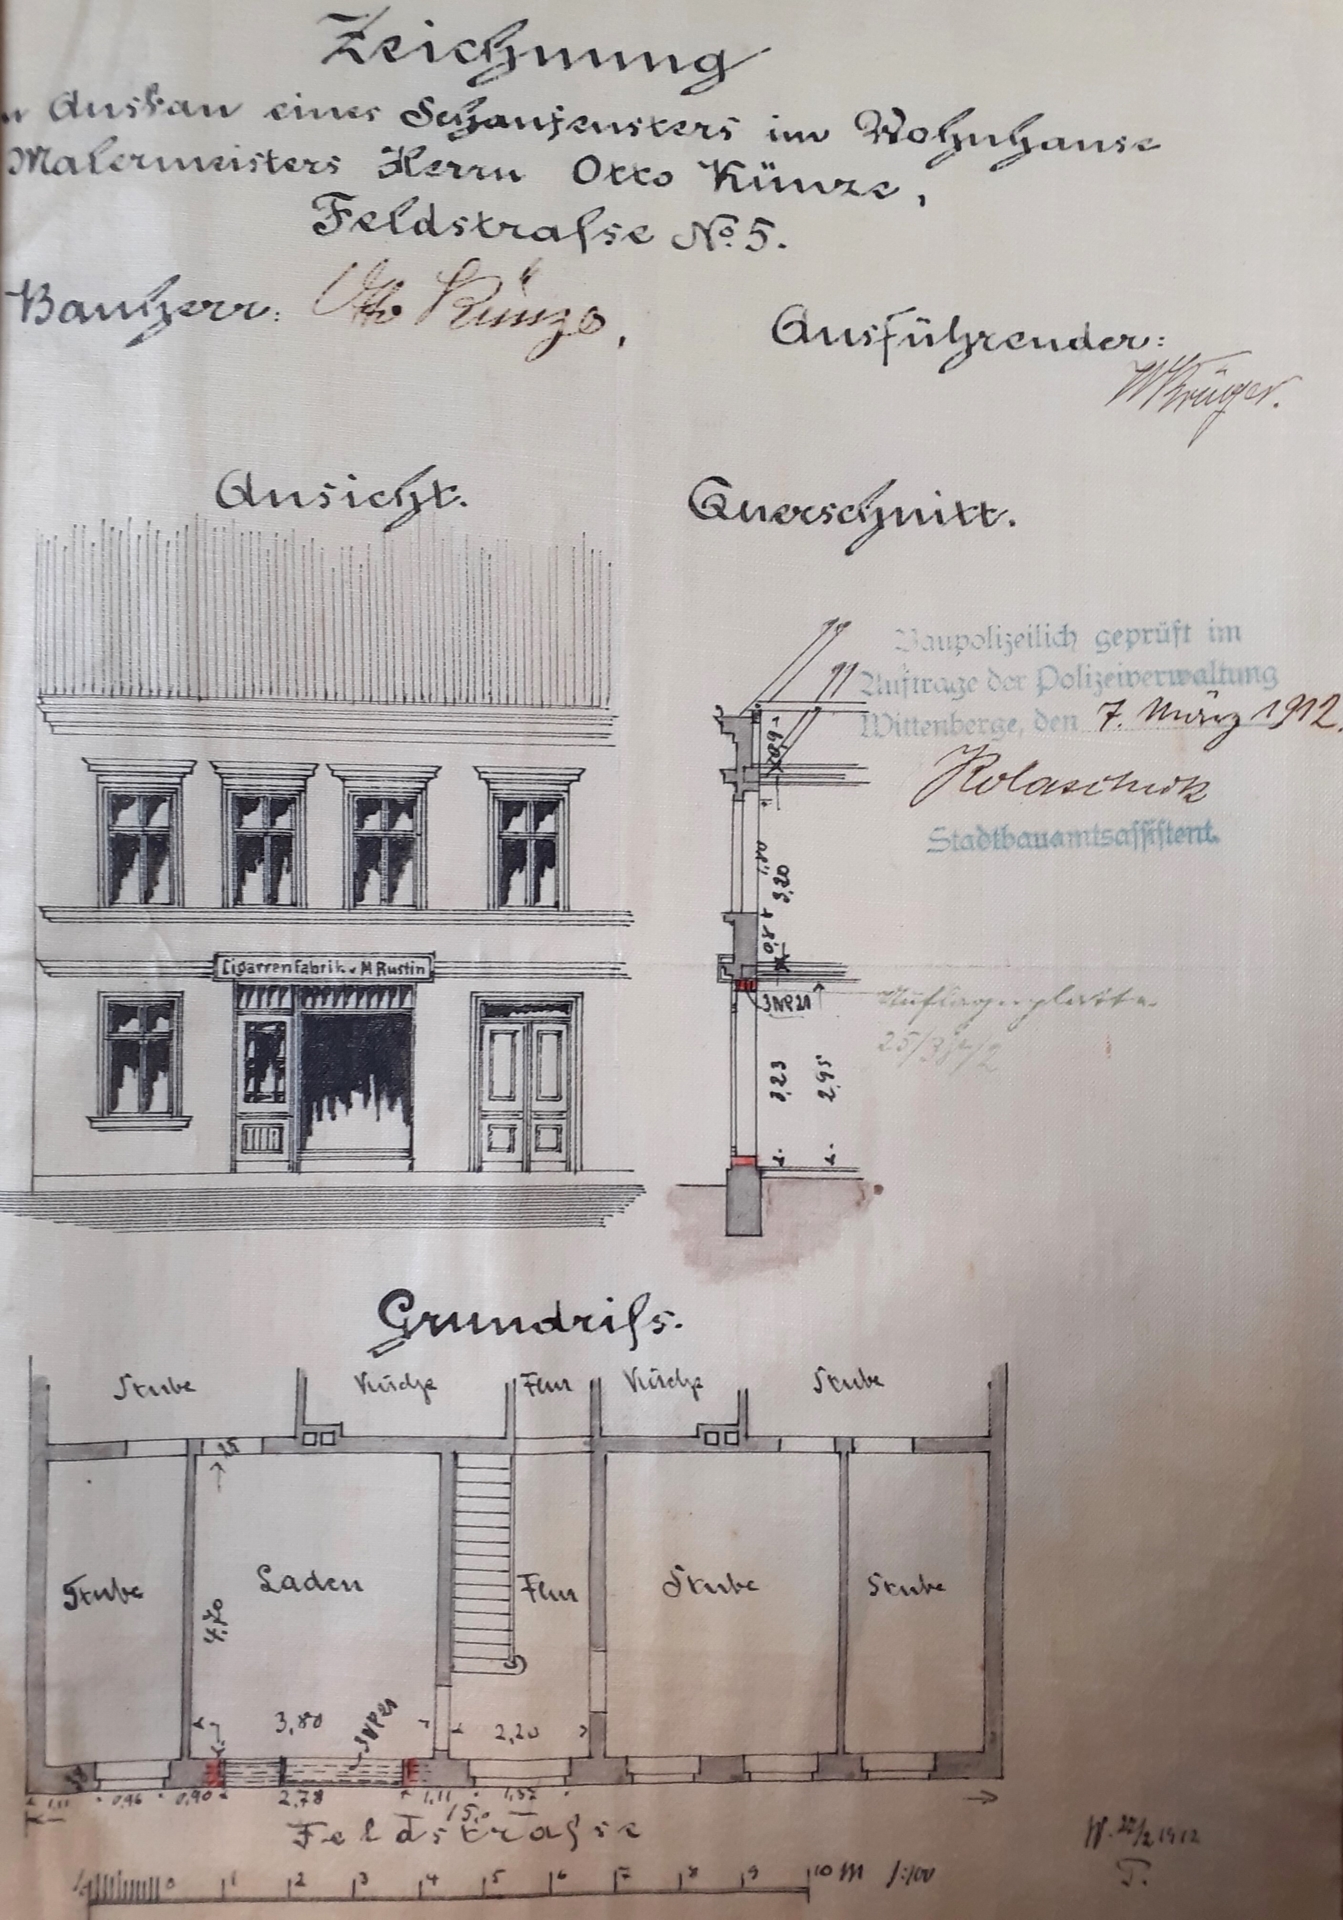 Zeichnung
Ausbau eines Schaufensters im Wohnhause
Malermeisters Herrn Otto Künze,
Feldstraſse No. 5.
Bauherr: Otto Künze,
Ausführender:
W Krüger.
Ansicht.
Querschnitt.
Baupolizeilich geprüft im
Auftrage der Polizeiverwaltung
Wittenberge, den 7. März 1912.
Stadtbauamtsaſſiſtent.
Cigarrenfabrik v M Rustin
3,20
3 NP 21
Auflagerplatte
3,23
2,95
Grundriſs.
Stube Küche Flur Küche Stube
Stube Laden Flur Stube Stube
4,70
3,80
3 NP 21
2,20
1,11 0,96 0,90 2,78 1,11 1,37
15,0
Feldstraſse
W. 22/2 1912
0 1 2 3 4 5 6 7 8 9 10 M 1:100